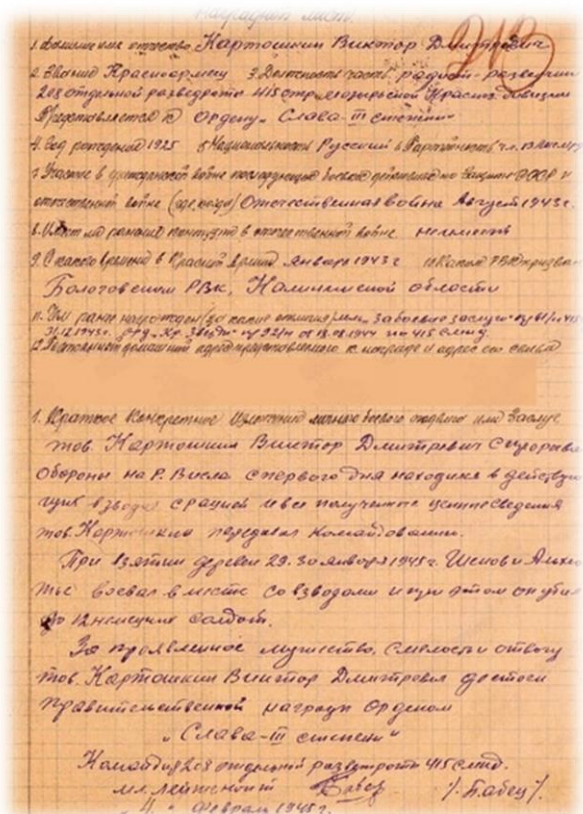 Наградной лист.
1. Фамилия имя отчество Картошкин Виктор Дмитревич
2. Звание Красноармеец 3. Должность часть радист-разведчик
208 отдельной разведроты 415 стр. Мозырьской Красноз. дивизии
Представляется к Ордену „Слава-III степени"
4. Год рождения 1925 5. Национальность Русский 6. Партийность чл. ВЛКСМ
7. Участие в гражданской войне последующих боевых действиях по защите СССР и
отечественной войне (где, когда) Отечественная война Август 1943 г.
8. Имеет ли ранения контузии в отечественной войне не имеет
9. С какого времени в Красной армии Январь 1943 г 10 Каким РВК призван
Бологовским РВК, Калининской области
11. Чем ранее награжден (за какие отличия) мед. За боевые заслуги пр
31.12.1943 г. Кр. Звезда пр 22/н от 13.08.1944 по 415 СМКД.
12. Постоянный домашний адрес представляемого к награде и адрес его семьи
1. Краткое Конкретное Изложение личного боевого подвига или Заслуг
тов. Картошкин Виктор Дмитревич с
Обороны на Р. Висла с первого дня находился в действую
щих взводах с рацией и все полученные ценные сведения
тов. Картошкин передавал командованию.
При взятии деревен 29.30 января 1945 г.
воевал вместе со взводами и при этом он убил
до 12 немецких солдат.
За проявленное мужество, смелость и отвагу
тов. Картошкин Виктор Дмитревич достоен
правительственной награды орденом
„Слава-III степени"
Командир 208 отдельной разведроты 415 СМКД.
мл. лейтенант /.Бабец/.
„4" Февраль 1945 г.